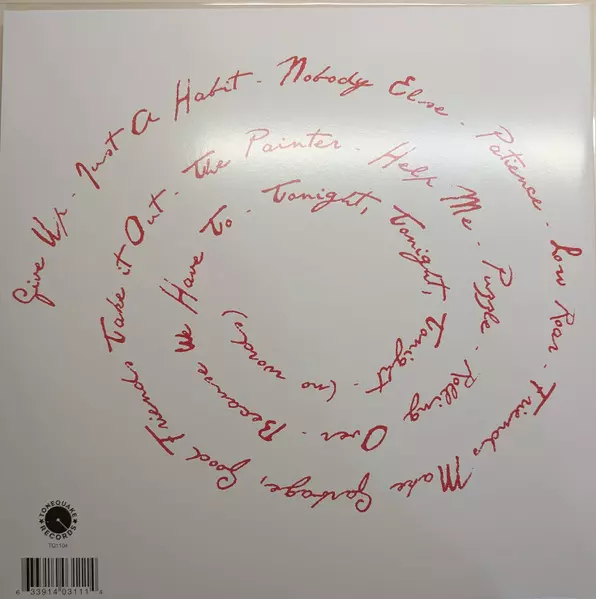 Give Up - Just A Habit - Nobody Else - Patience - Low Roar - Friends Make Garbage, Good Friends Take it Out - The Painter - Help Me - Puzzle - Rolling Over - Because We Have To - Tonight, Tonight, Tonight - (no words)
TONEQUAKE RECORDS
TQ1104
6 33914 03111 4